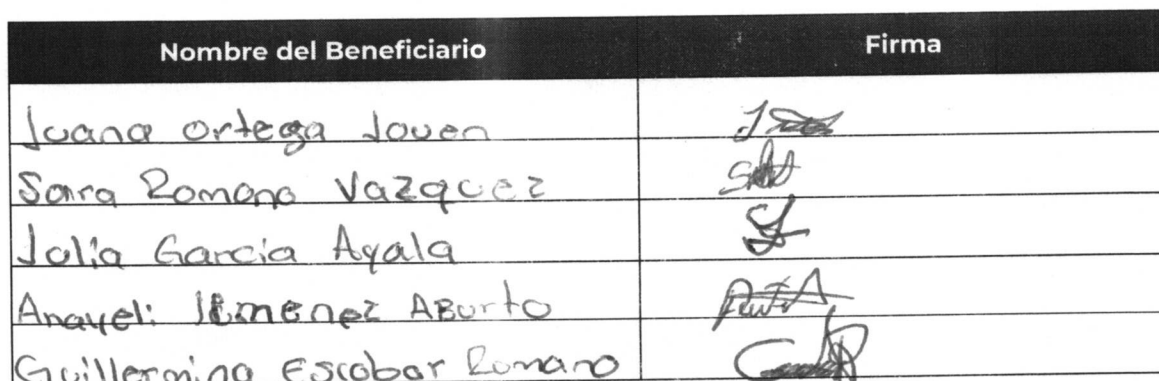 Nombre del Beneficiario Firma
Juana Ortega Joven
Sara Romano Vazquez
Julia Garcia Ayala
Anayeli Jimenez Aburto
Guillermina Escobar Romano